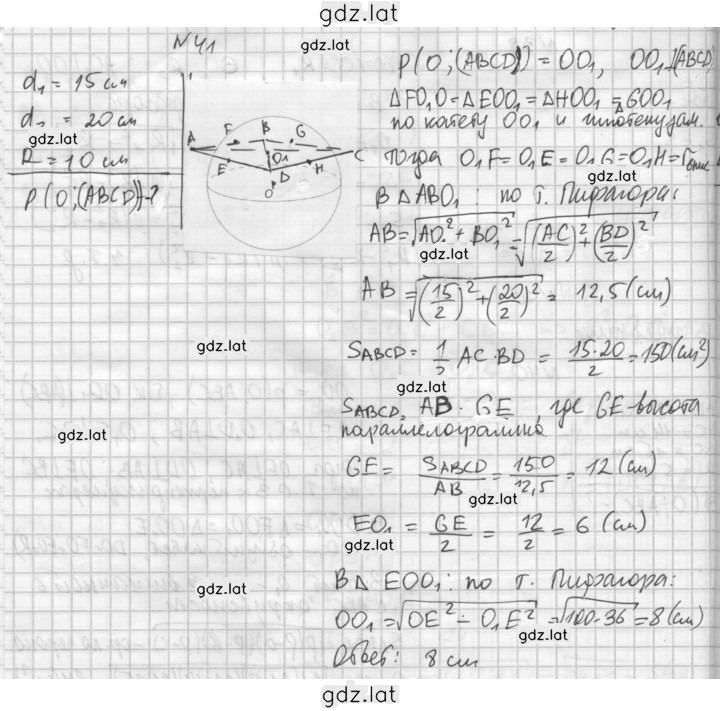 gdz.lat
N 41
gdz.lat
d₁ = 15 см
d₂ = 20 см
gdz.lat
R = 10 см
ρ(O;(ABCD))-?
A F B G C E O₁ H D O
ρ(O;(ABCD)) = OO₁, OO₁⊥(ABCD)
ΔFO₁O = ΔEOO₁ = ΔHOO₁ = ΔGOO₁
по катету OO₁ и гипотенузам.
Тогда O₁F = O₁E = O₁G = O₁H = r
gdz.lat
В Δ ABO₁: по т. Пифагора:
AB = √(AO₁² + BO₁²) = √((AC/2)² + (BD/2)²)
gdz.lat
AB = √((15/2)² + (20/2)²) = 12,5 (см)
gdz.lat
SABCD = 1/2 AC·BD = 15·20/2 = 150 (см²)
gdz.lat
SABCD = AB · GE, где GE-высота
gdz.lat
параллелограмма
GE = SABCD/AB = 150/12,5 = 12 (см)
gdz.lat
EO₁ = GE/2 = 12/2 = 6 (см)
gdz.lat
В Δ EOO₁: по т. Пифагора:
gdz.lat
OO₁ = √(OE² - O₁E²) = √(100-36) = 8 (см)
gdz.lat
Ответ: 8 см
gdz.lat